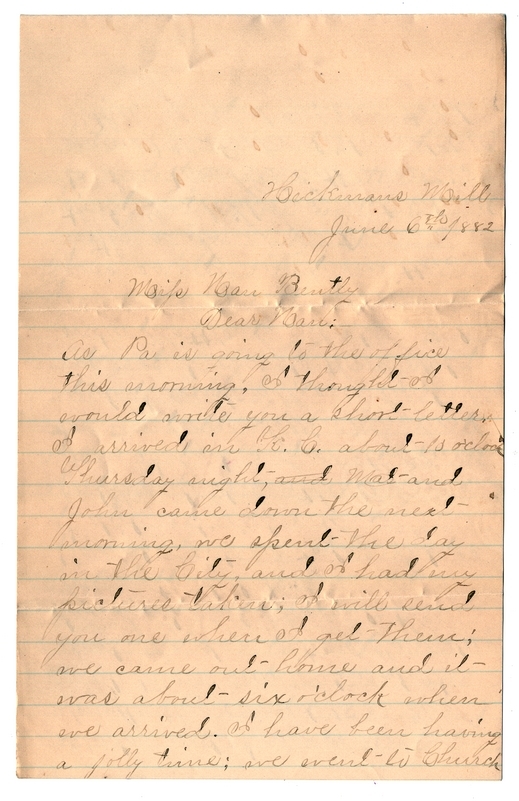 Hickmans Mill
June 6th 1882
Miss Nan Bently
Dear Nan;
As Pa is going to the office
this morning, I thought I
would write you a short letter,
I arrived in K. C. about o'clock
Thursday night, and Mat and
John came down the next
morning, we spent the day
in the City, and I had my
pictures taken; I will send
you one when I get them;
we came out home and it
was about six o'clock when
we arrived. I have been having
a jolly time; we went to Church